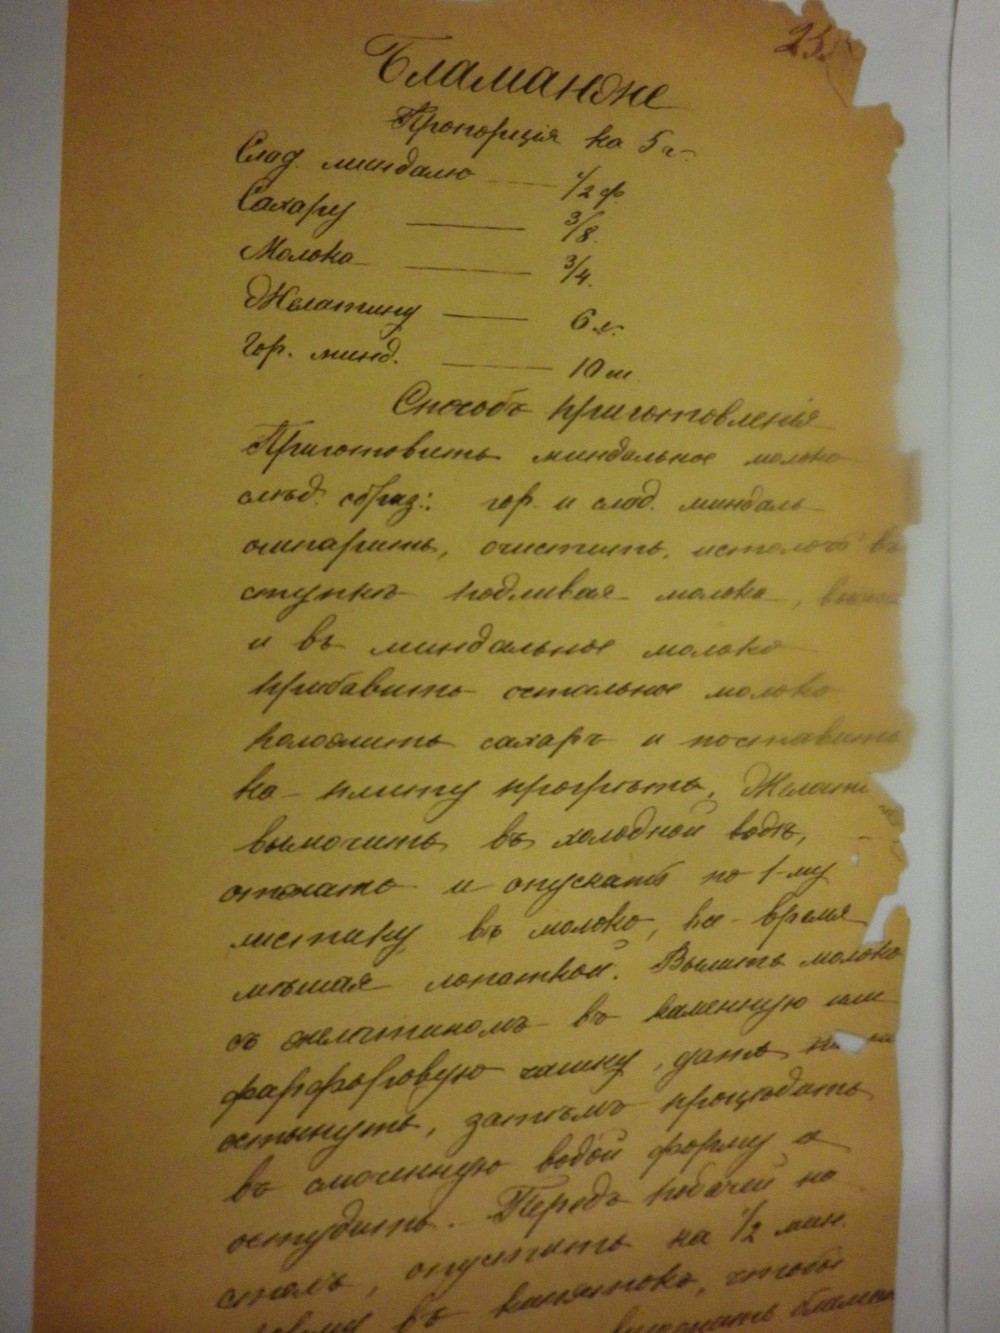 23
Бламанже
Пропорція на 5 ч.
Слад. миндалю 1/2 ф.
Сахару 3/8.
Молока 3/4.
Желатину 6 л.
Гор. минд. 10 ш.
Способъ приготовленія
Приготовить миндальное молоко
слѣд. образ.: гор. и слад. миндаль
ошпарить, очистить, истолочь въ
ступкѣ подливая молока,
и въ миндальное молоко
прибавить остальное молоко
положить сахаръ и поставить
на плиту прогрѣть. Желати
вымочить въ холодной водѣ,
отжать и опускать по 1-му
листику въ молоко, все время
мѣшая лопаткой. Вылить молоко
съ желатиномъ въ каменную или
фарфоровую чашку, дать
остынуть, затѣмъ процѣдить
въ смоченную водой форму и
остудить. Передъ подачей на
столъ, опустить на 1/2 мин.
форму въ кипятокъ, чтобы
бламан